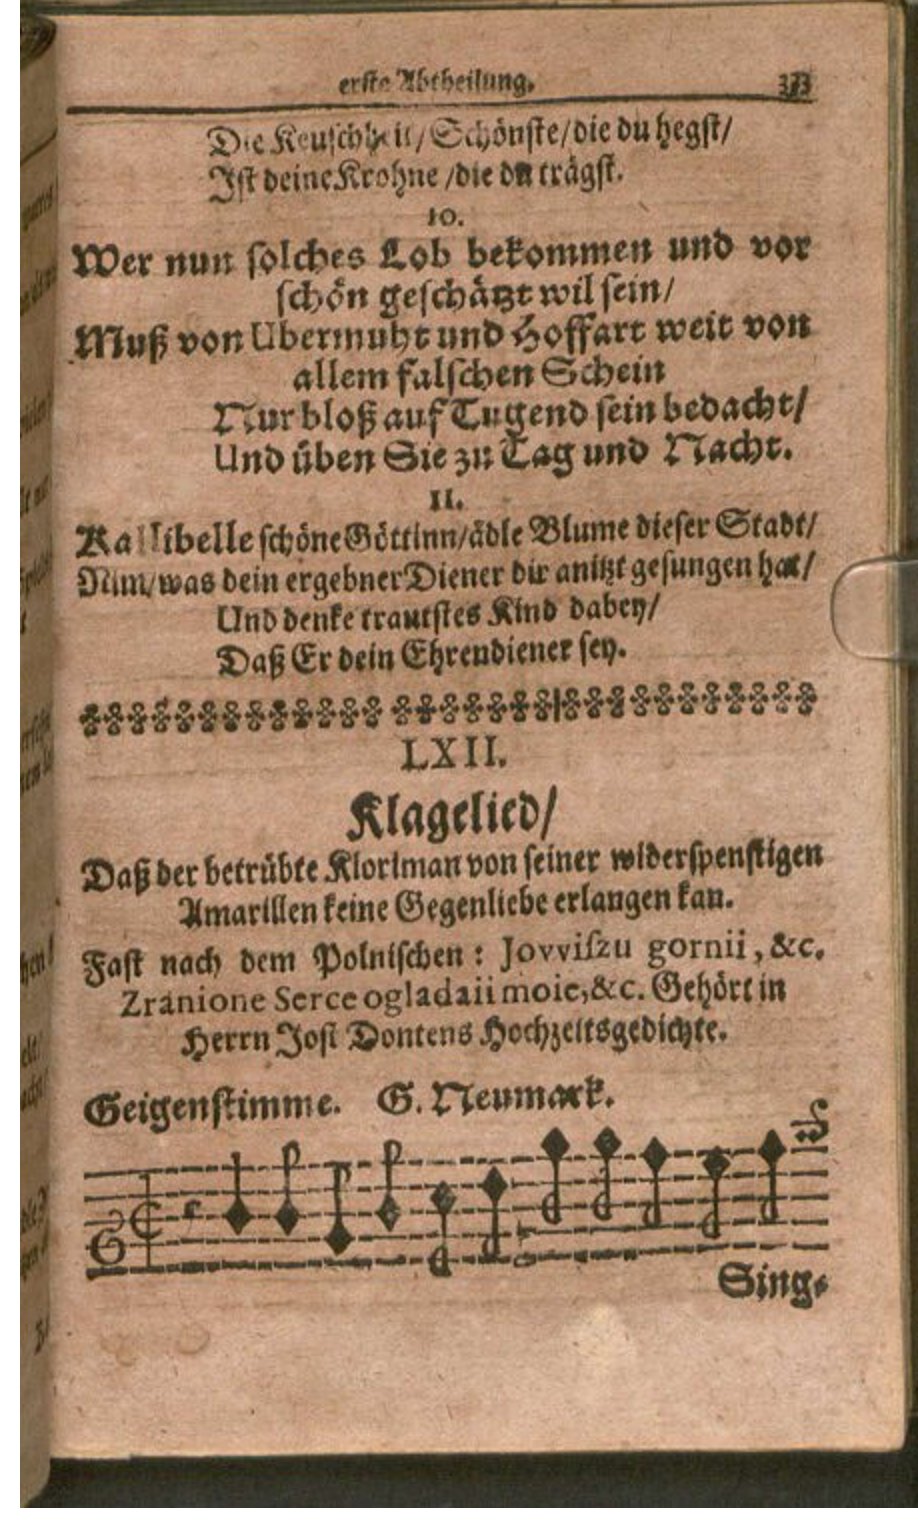 erste Abtheilung.
Die Keuschheit/Schönste/die du hegst/
Ist deine Krohne/die du trägst.
10.
Wer nun solches Lob bekommen und vor
schön geschätzt wil sein/
Muß von Ubermuht und Hoffart weit von
allem falschen Schein
Nur bloß auf Tugend sein bedacht/
Und üben Sie zu Tag und Nacht.
11.
Kallibelle schöne Göttinn/ädle Blume dieser Stadt/
Nim/was dein ergebner Diener dir anitzt gesungen hat/
Und denke trautstes Kind dabey/
Daß Er dein Ehrendiener sey.
LXII.
Klagelied/
Daß der betrübte Kloriman von seiner widerspenstigen
Amarillen keine Gegenliebe erlangen kan.
Fast nach dem Polnischen: Jovvifzu gornii, &c.
Zranione Serce ogladaii moie,&c. Gehört in
Herrn Jost Dontens Hochzeitsgedichte.
Geigenstimme. G. Neumark.
Sing-